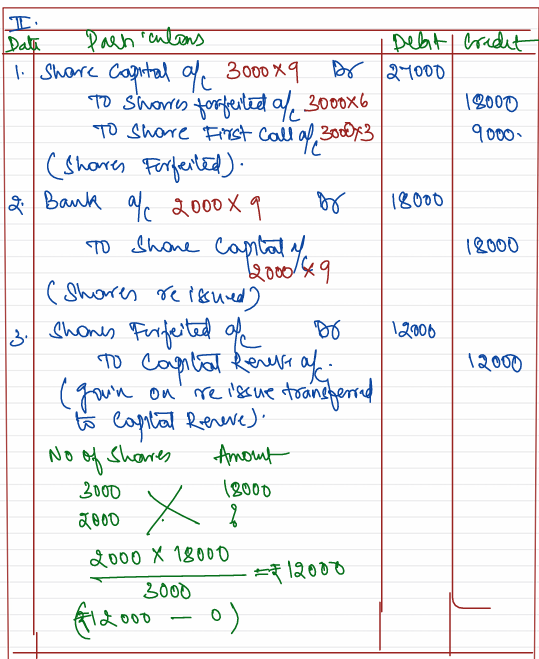 II.
Date Particulars Debit Credit
1. Share Capital a/c 3000×9 Dr 27000
To Shares forfeited a/c 3000×6 18000
To Share First Call a/c 3000×3 9000.
(Shares Forfeited).
2. Bank a/c 2000×9 Dr 18000
To Share Capital a/c 18000
2000×9
(Shares reissued)
3. Shares Forfeited a/c Dr 12000
To Capital Reserve a/c. 12000
(gain on reissue transferred
to Capital Reserve).
No of Shares Amount
3000 18000
2000 ?
2000 × 18000
= ₹12000
3000
(₹12000 – 0)